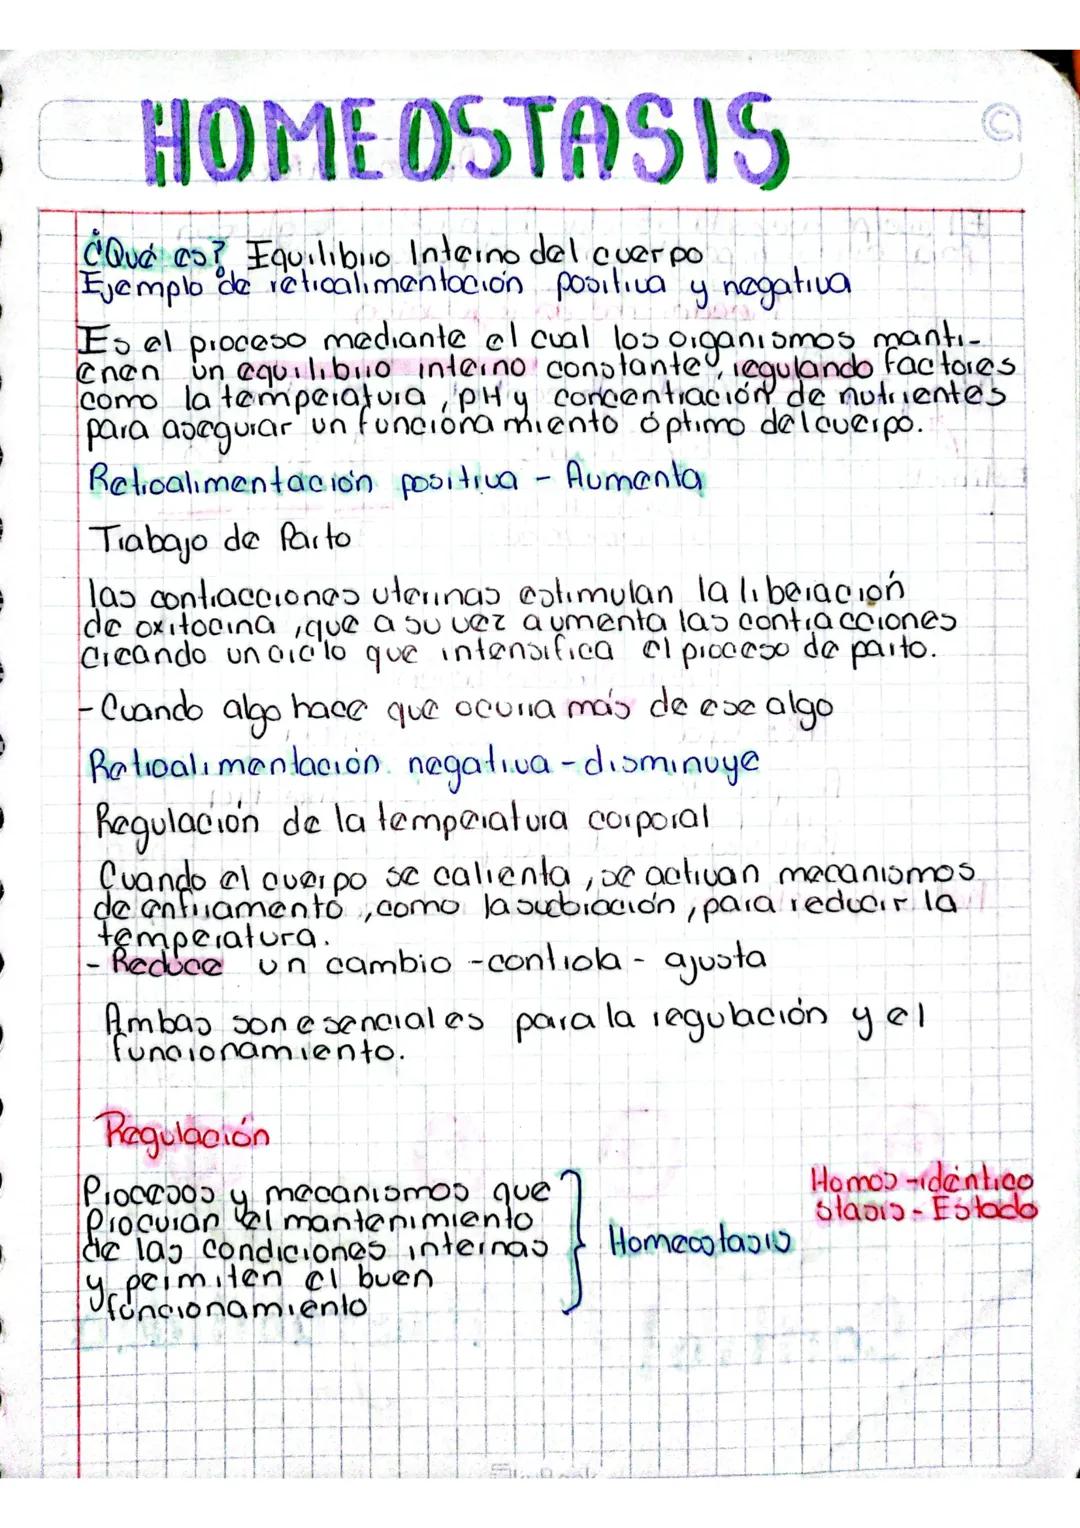 HOMEOSTASIS
¿Qué es? Equilibrio Interno del cuerpo
Ejemplo de retroalimentación positiva y negativa
Es el proceso mediante el cual los organismos manti-
enen un equilibrio interno constante, regulando factores
como la temperatura, pH y concentración de nutrientes
para asegurar un funcionamiento óptimo del cuerpo.
Retroalimentación positiva - Aumenta
Trabajo de Parto
las contracciones uterinas estimulan la liberación
de oxitocina, que a su vez aumenta las contracciones
creando un ciclo que intensifica el proceso de parto.
- Cuando algo hace que ocurra más de ese algo
Retroalimentación negativa - disminuye
Regulación de la temperatura corporal
Cuando el cuerpo se calienta, se activan mecanismos
de enfriamento, como la sudoración, para reducir la
temperatura.
- Reduce un cambio - controla - ajusta
Ambas son esenciales para la regulación y el
funcionamiento.
Regulación
Procesos y mecanismos que
Procuran el mantenimiento
de las condiciones internas
y permiten el buen
funcionamiento
Homeostasis
Homos - idéntico
stasis - Estado